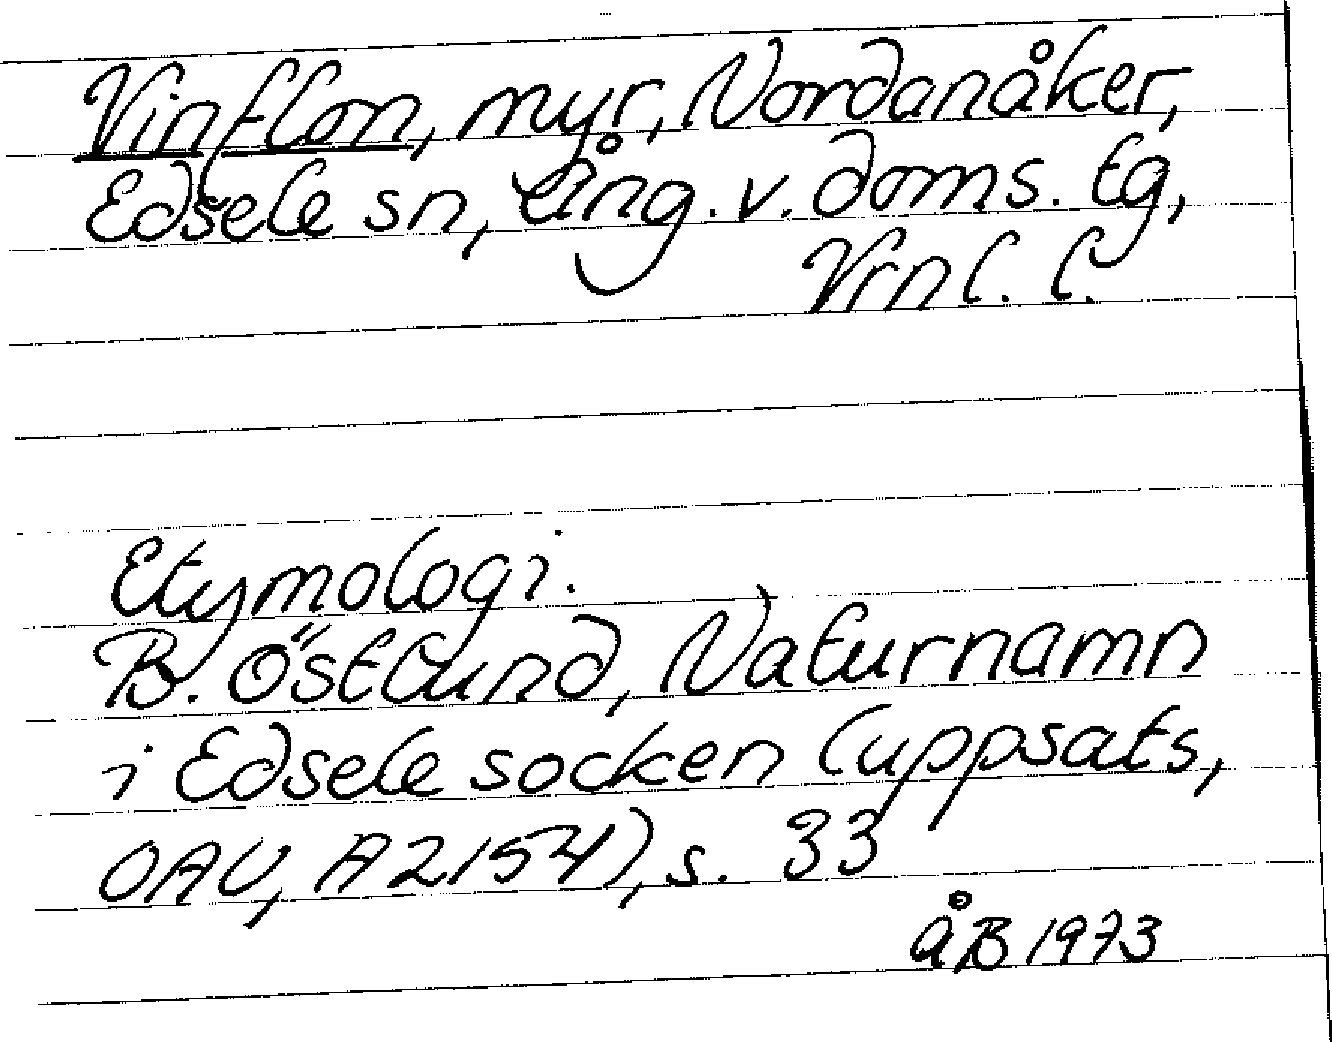 Vinflon, myr, Nordanåker,
Edsele sn, Ång. v. doms. tg,
Vrnl. l.
Etymologi.
B. Östlund, Naturnamn
i Edsele socken (uppsats,
OAU, A2154), s. 33
åB 1973